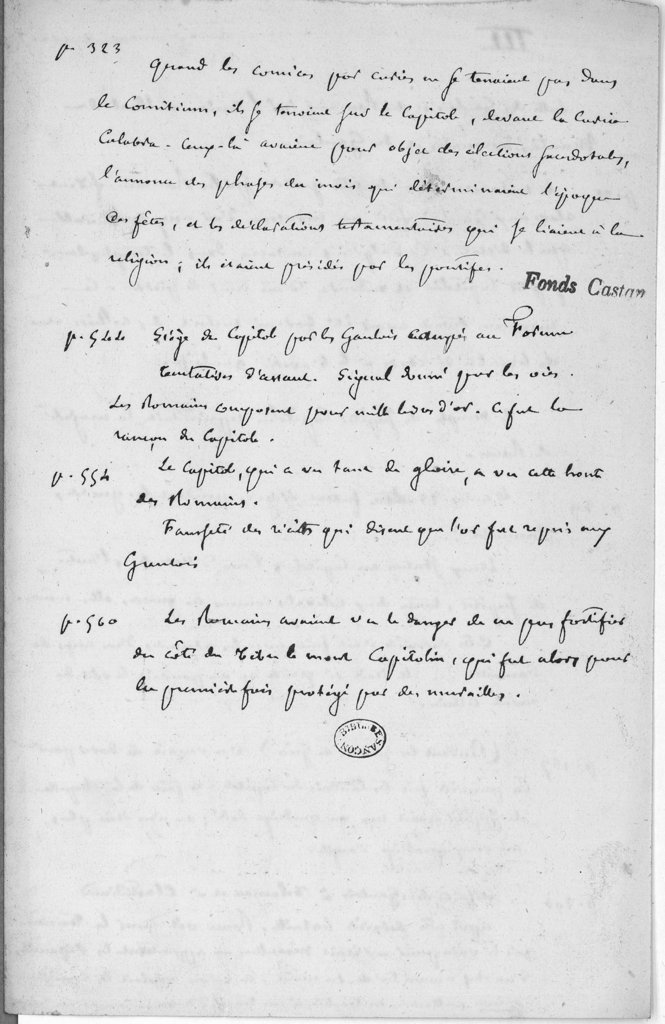 p. 323
Quand les comices par curies ne se tenaient pas dans
le Comitium, ils se tenaient sur le Capitole, devant la Curia
Calabra. Ceux-là avaient pour objet des élections sacerdotales,
l'annonce des phases du mois qui déterminaient l'époque
des fêtes, et les déclarations testamentaires qui se liaient à la
religion ; ils étaient présidés par les pontifes.
Fonds Castan
p. 544 Siège du Capitole par les Gaulois campés au Forum
tentatives d'assaut. Signal donné par les oies.
Les Romains composent pour mille livres d'or. Ce fut la
rançon du Capitole.
p. 554 Le Capitole, qui a vu tant de gloire, a vu cette honte
des Romains.
Fausseté des récits qui disent que l'or fut repris aux
Gaulois
p. 560 Les Romains avaient vu le danger de ne pas fortifier
du côté du Tibre le mont Capitolin, qui fut alors pour
la première fois protégé par des murailles.
BIBL. BESANÇON